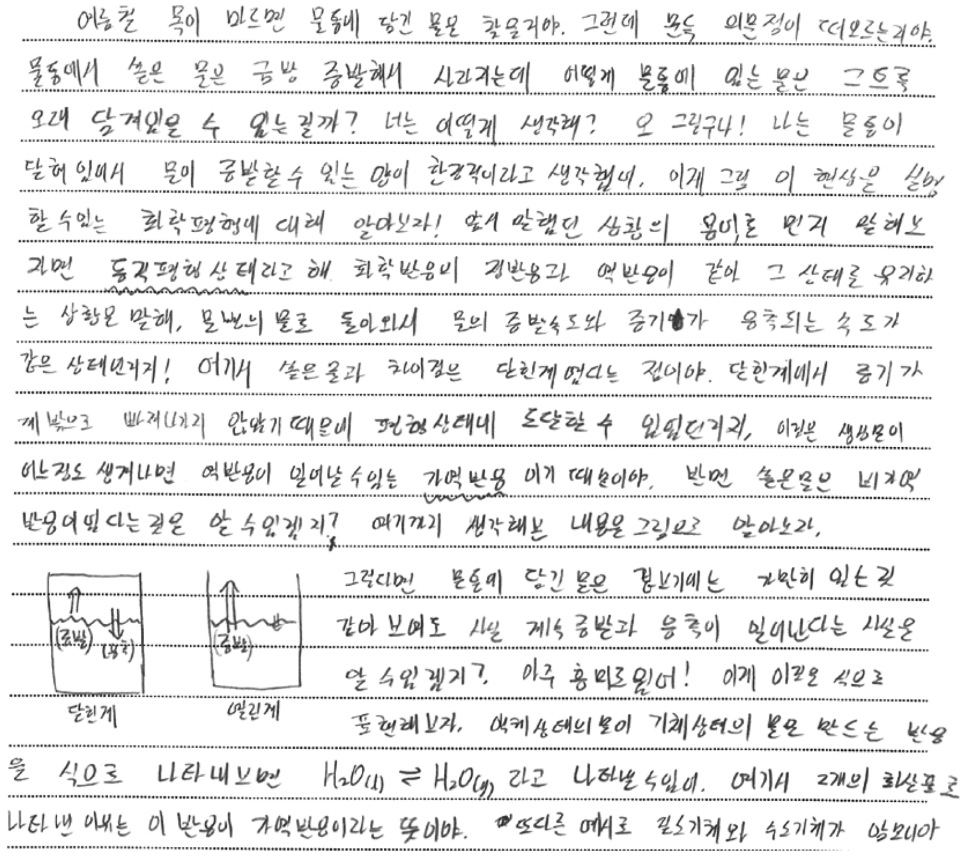 여름철 목이 마르면 물통에 담긴 물은 찾을거야. 그런데 문득 의문점이 떠오르는거야.
물통에서 쏟은 물은 금방 증발해서 사라지는데 어떻게 물통에 있는 물은 그토록
오래 담겨있을 수 있는걸까? 너는 어떻게 생각해? 오 그렇구나! 나는 물통이
닫혀 있어서 물이 증발할 수 있는 양이 한정적이라고 생각했어. 이제 그럼 이 현상을 설명
할 수있는 화학평형에 대해 알아보자! 앞서 말했던 상황의 용어로 먼저 말해보
자면 동적평형상태라고 해. 화학반응이 정반응과 역반응이 같아 그 상태를 유지하
는 상황을 말해, 물병의 물로 돌아와서 물의 증발속도와 증기가 응축되는 속도가
같은 상태인거지! 여기서 쏟은물과 차이점은 닫힌계였다는 점이야. 닫힌계에서 증기가
계 밖으로 빠져나가지 않았기 때문에 평형상태에 도달할 수 있었던거지, 이것은 생성물이
어느정도 생겨나면 역반응이 일어날 수있는 가역반응 이기 때문이야. 반면 쏟은물은 비가역
반응이었다는 것은 알 수있겠지? 여기까지 생각해본 내용을 그림으로 알아보자,
그렇다면 물통에 담긴 물은 겉보기에는 가만히 있는것
같아 보여도 사실 계속 증발과 응축이 일어난다는 사실은
알 수있겠지? 아주 흥미로웠어! 이제 이것을 식으로
표현해보자. 액체상태의물이 기체상태의 물은 만드는 반응
(증발) (응축)
닫힌계
(증발)
열린계
을 식으로 나타내보면 H₂O(l) ⇌ H₂O(g) 라고 나타낼 수있어. 여기서 2개의 화살표로
나타낸 이유는 이 반응이 가역반응이라는 뜻이야. 또다른 예시로 질소기체와 수소기체가 암모니아